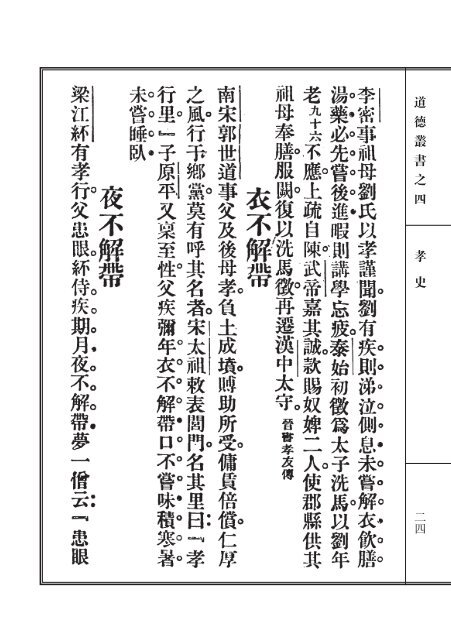 道德叢書之四
孝史
二四
李密事祖母劉氏以孝謹聞。劉有疾。則涕泣側息。未嘗解衣。飲膳。
湯藥。必先嘗後進。暇則講學忘疲。泰始初徵爲太子洗馬。以劉年
老九十六不應。上疏自陳。武帝嘉其誠款。賜奴婢二人。使郡縣供其
祖母奉膳。服闋。復以洗馬徵。再遷漢中太守。晉書孝友傳
衣不解帶
南宋郭世道事父及後母孝。負土成墳。賻助所受。傭賃倍償。仁厚
之風。行于鄉黨。莫有呼其名者。宋太祖敕表閭門。名其里曰：『孝
行里。』子原平又稟至性。父疾彌年。衣不解帶。口不嘗味。積寒暑。
未嘗睡臥。
夜不解帶
梁江紑有孝行。父患眼。紑侍疾。期月。夜不解帶。夢一僧云：『患眼